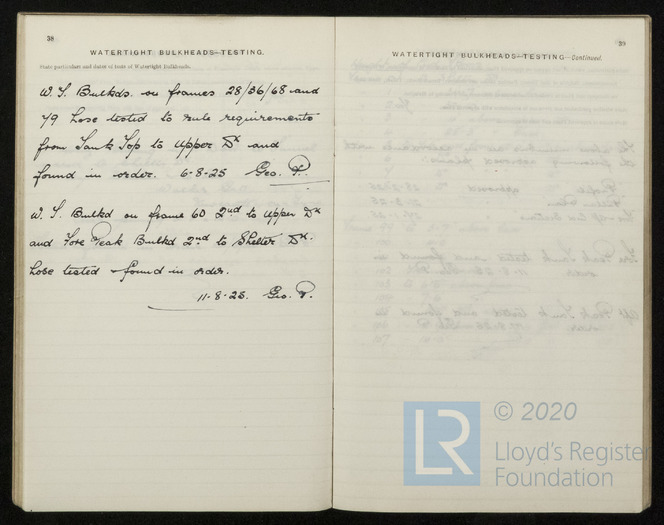 38
WATERTIGHT BULKHEADS—TESTING.
State particulars and dates of tests of Watertight Bulkheads.
W. T. Bulkds. on frames 28/36/68 and
79 hose tested to rule requirements
from Tank Top to Upper Dk and
found in order. 6-8-25 Geo. P.
W. T. Bulkd on frame 60 2nd to Upper Dk
and Fore Peak Bulkd 2nd to Shelter Dk.
hose tested & found in order.
11-8-25. Geo. P.
39
WATERTIGHT BULKHEADS—TESTING—Continued.
LR
© 2020
Lloyd's Register
Foundation